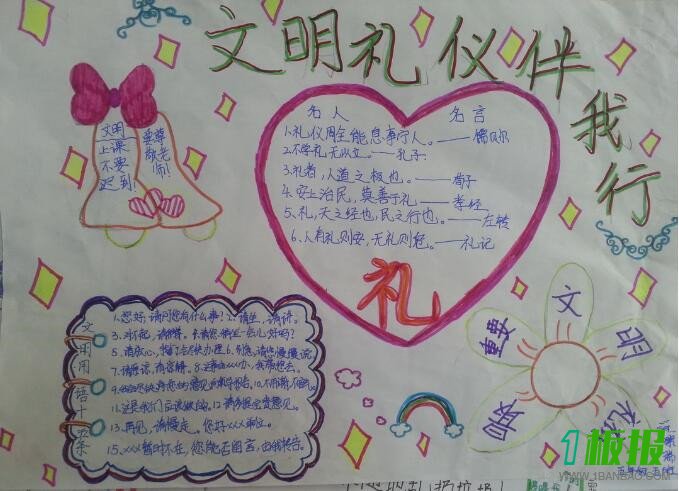 文明礼仪伴我行
文明
上课
不要
迟到!
要尊
敬老
师!
名人 名言
1.礼仪周全能息事宁人。——儒贝尔
2.不学礼,无以立。——孔子
3.礼者,人道之极也。——荀子
4.安上治民,莫善于礼——孝经
5.礼,天之经也,民之行也。——左转
6.人有礼则安,无礼则危。——礼记
礼
文明用语十五条
1.您好,请问您有什么事?2.请坐,请讲。
3.对不起,请稍等。
5.请放心,我们会尽快办理 6.别急,请您慢慢说
7.请原谅,请谅解。
11.这是我们应该做的。12.请多提宝贵意见。
13.再见,请慢走。
15.xxx暂时不在,您能否留言,由我转告。
文明
礼
最
重要
1板报
WWW.1BANBAO.COM